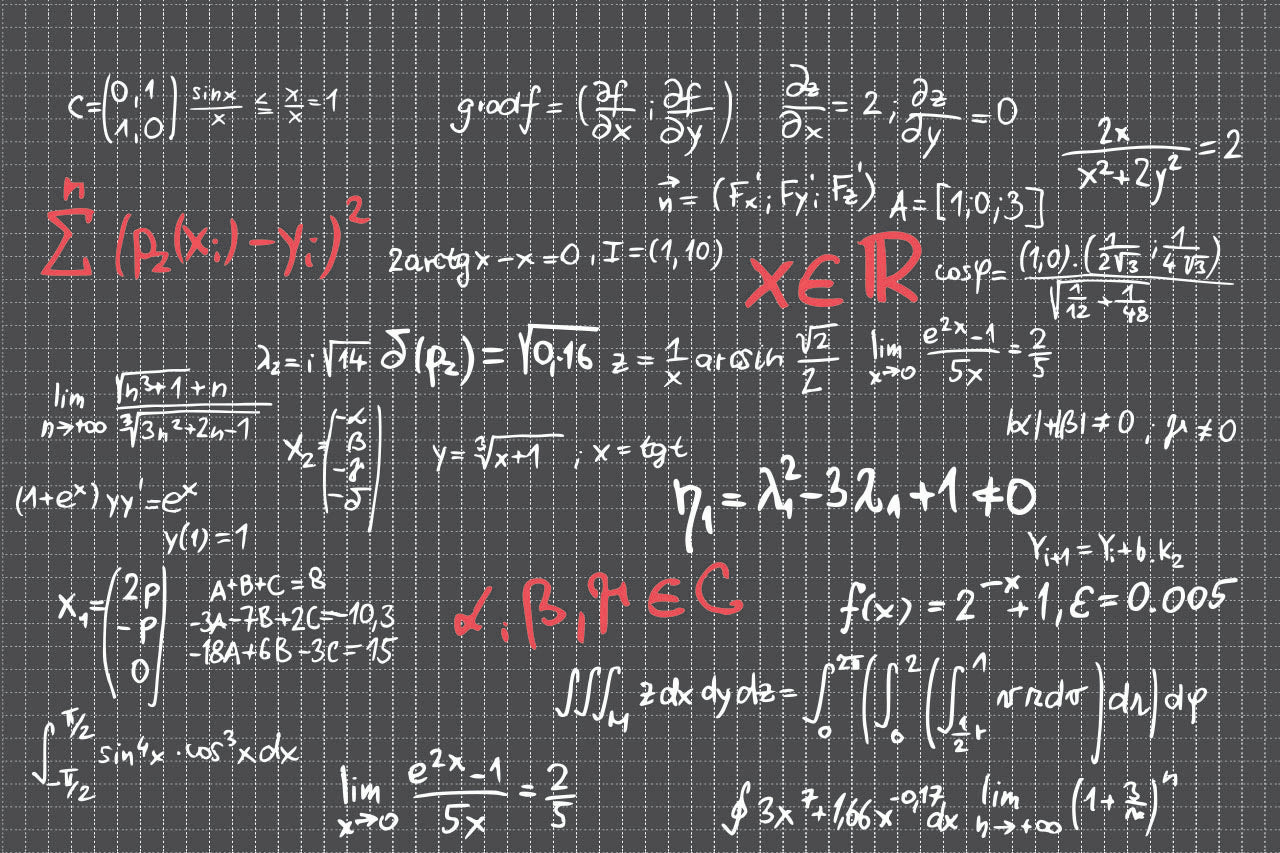 C=(0,1 1,0) sinx/x ≤ x/x=1
gradf = (∂f/∂x ; ∂f/∂y)
∂z/∂x = 2 ; ∂z/∂y = 0
2x/(x²+2y²) = 2
n⃗ = (Fx'; Fy'; Fz')
A=[1;0;3]
∑ⁿ (p₂(xᵢ)-yᵢ)²
2arctgx-x=0, I=(1,10)
x∈ℝ
cosφ= (1,0)·(1/2√3 ; 1/4√3) / √(1/12 + 1/48)
λ₂=i√14
δ(p₂)=√0,16
z = 1/x arcsin √2/2
lim x→0 (e^2x-1)/5x = 2/5
lim n→+∞ (√(n³+1)+n)/∛(3n²+2n-1)
x₂=(-α β -γ -δ)
y=∛(x+1) ; x=tgt
|α|+|β|≠0 ; γ≠0
(1+e^x)yy'=e^x
y(1)=1
η₁=λ₁²-3λ₁+1≠0
Yᵢ₊₁=Yᵢ+b.K₂
x₁=(2p -p 0)
A+B+C=8
-3A-7B+2C=-10,3
-18A+6B-3C=15
α,β,γ∈C
f(x)=2^-x+1, ε=0.005
∭_M zdxdydz=∫₀^2π(∫₀²(∫_½r¹ vrdv)dr)dφ
∫_-π/2^π/2 sin⁴x·cos³xdx
lim x→0 (e^2x-1)/5x = 2/5
∮3x⁷+1,66x^-0,17dx
lim n→+∞ (1+3/n)ⁿ